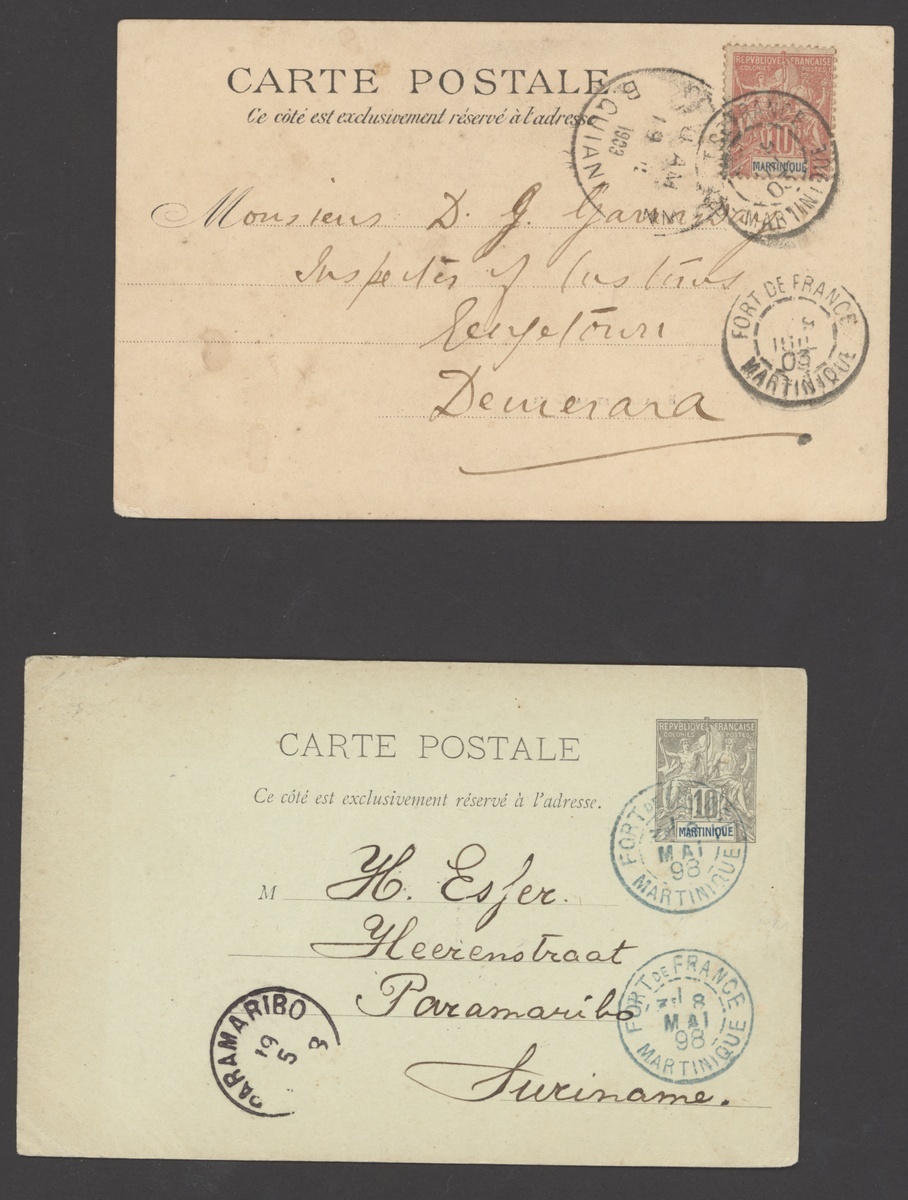 CARTE POSTALE
Ce côté est exclusivement réservé à l'adresse
REPVBLIQVE FRANÇAISE
COLONIES POSTES
10
MARTINIQUE
B GUIANA
1903
AM
19
FORT DE FRANCE
MARTINIQUE
03
Monsieur D. G.
Inspector of
Georgetown
Demerara
FORT DE FRANCE
JUIL
03
MARTINIQUE
CARTE POSTALE
Ce côté est exclusivement réservé à l'adresse.
REPVBLIQVE FRANÇAISE
COLONIES POSTES
10
MARTINIQUE
FORT DE FRANCE
MAI
98
MARTINIQUE
M H. Esser.
Heerenstraat
Paramaribo
Suriname.
FORT DE FRANCE
8
MAI
98
MARTINIQUE
PARAMARIBO
19
5